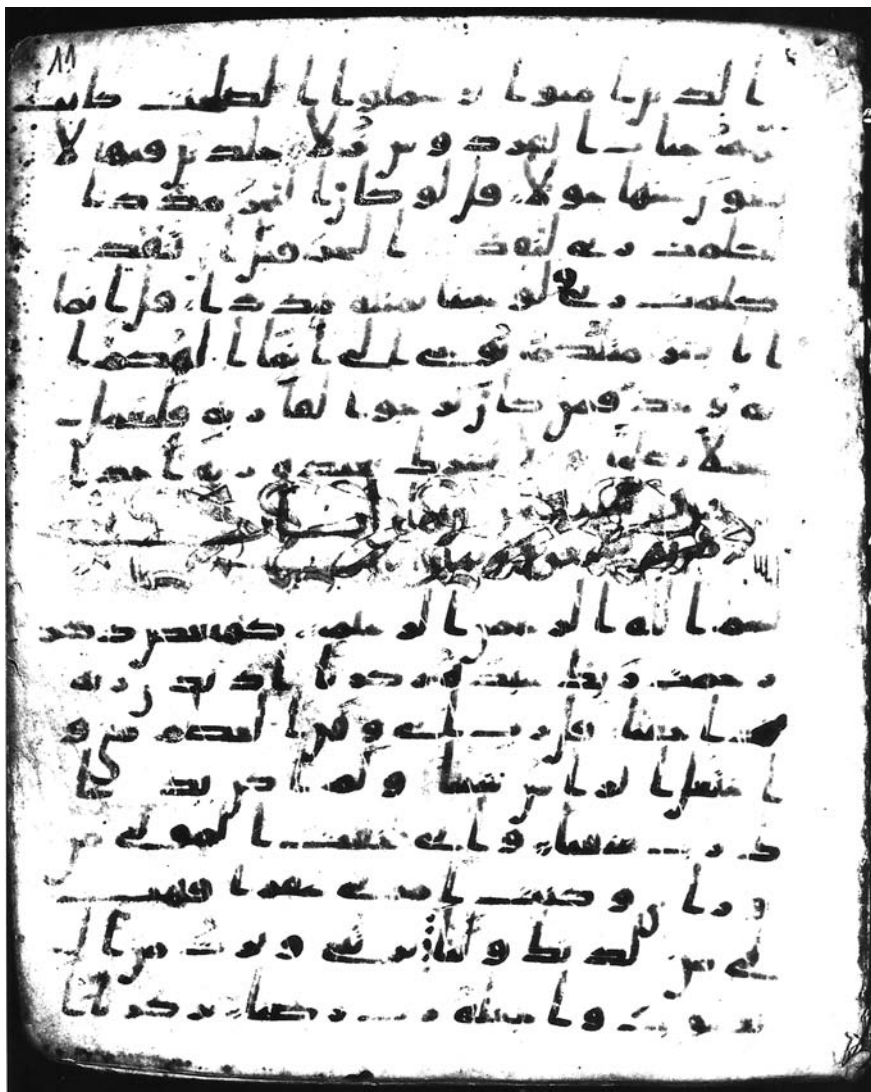 11
الذين امنوا و عملوا الصلحت كانت
لهم جنات الفردوس نزلا خلدين فيها لا
يبغون عنها حولا قل لو كان البحر مددا
لكلمت ربى لنفد البحر قبل ا تنفد
كلمت ربى ولو جئنا بمثله مددا قل انما
انا بشر مثلكم يوحى الى انما الهكم ا
له وحد فمن كان يرجوا لقا ربه فليعمل
عملا صلحا ولا يشرك بعبده ربه احدا
بسم الله الرحمن الرحيم كهيعص ذكر
رحمت ربك عبده زكريا اذ نادى ربه
ندا خفيا قل رب انى وهن العظم منى و
اشتعل الراس شيبا ولم اكن بدعا
ك رب شقيا و انى خفت المولى من
وراى و كنت امرتى عقرا فهب
لى من لدنك وليا يرثنى و يرث من ال
يعقوب و اجعله رب رضيا يزكريا انا